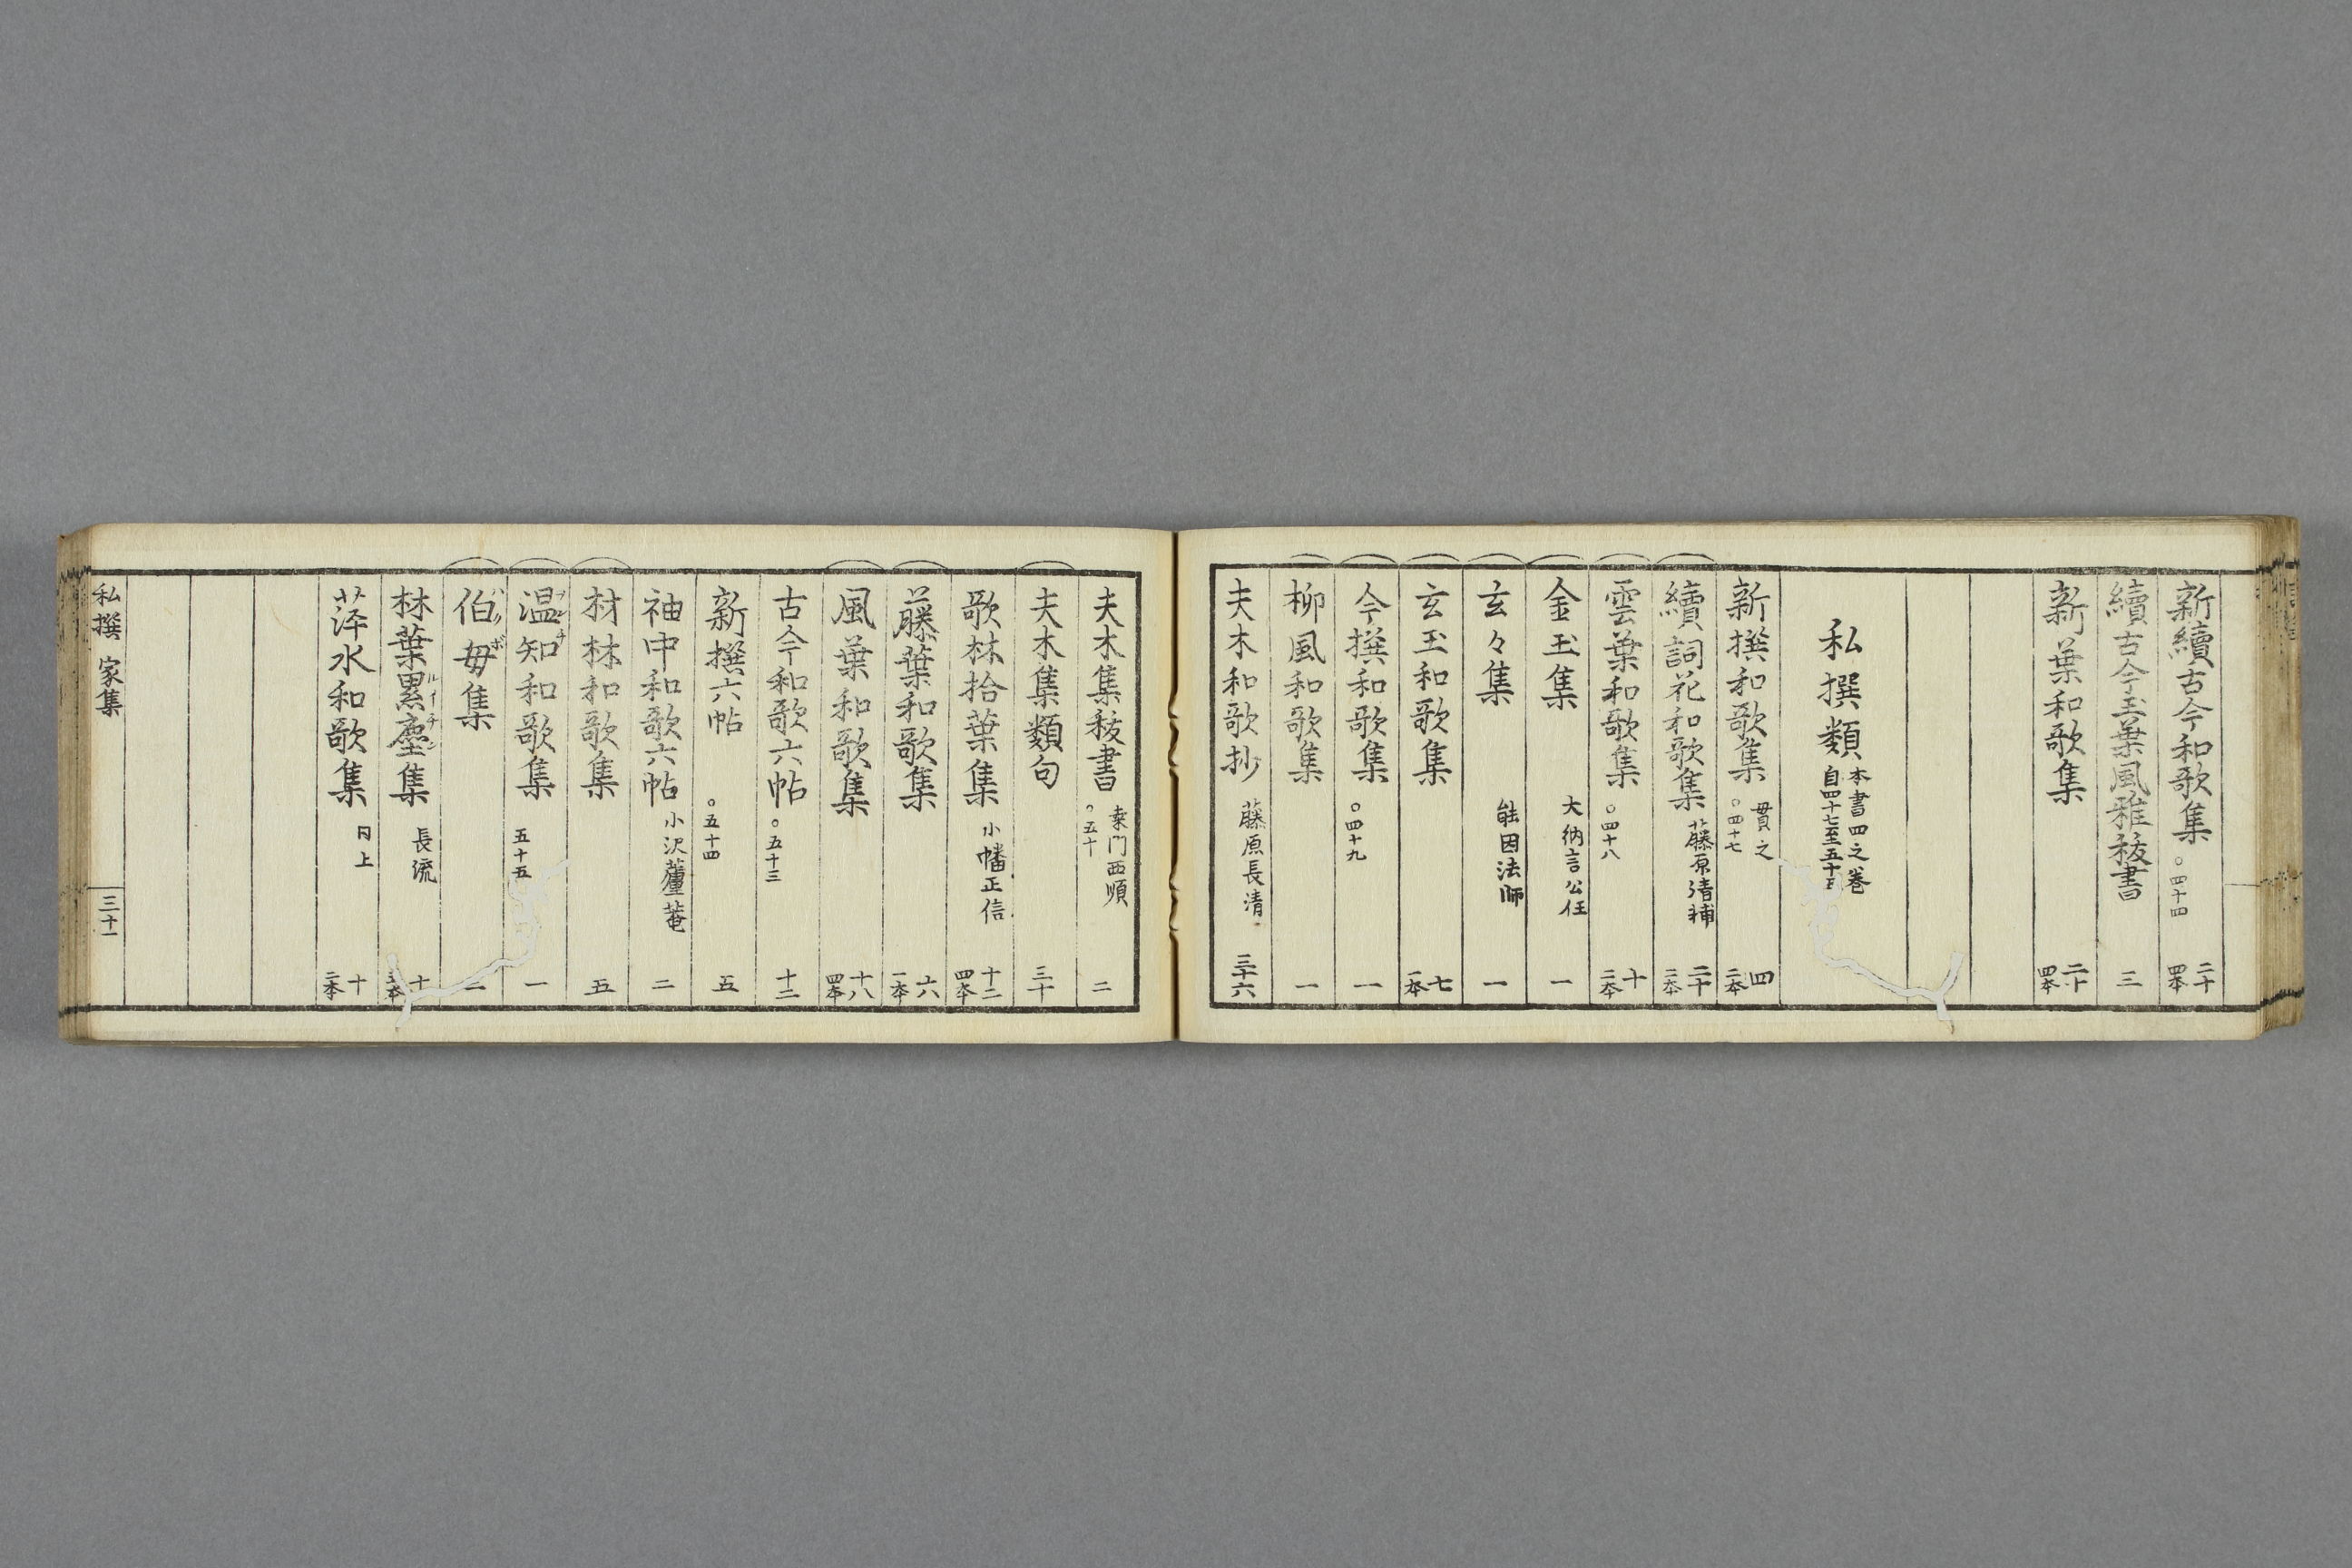 新續古今和歌集 ○四十四 二十 四本
續古今玉葉風雅秡書 三
新葉和歌集 二十 四本
私撰類 本書四之巻 自四十七至五十五
新撰和歌集 貫之 ○四十七 四 二本
續詞花和歌集 藤原清補 二十 二本
雲葉和歌集 ○四十八 十 二本
金玉集 大納言公任 一
玄々集 能因法師 一
玄玉和歌集 七 一本
今撰和歌集 ○四十九 一
柳風和歌集 一
夫木和歌抄 藤原長清 三十六
夫木集秡書 桒門西順 ○五十 二
夫木集類句 三十
歌林拾葉集 小幡正信 十二 四本
藤葉和歌集 六 一本
風葉和歌集 十八 四本
古今和歌六帖 ○五十三 十二
新撰六帖 ○五十四 五
袖中和歌六帖 小沢蘆菴 二
材林和歌集 五
温知和歌集 五十五 一
伯毋集 ハクボ
林葉累塵集 ルイヂン 長流 十
萍水和歌集 同上 十 二本
私撰 家集 三十一